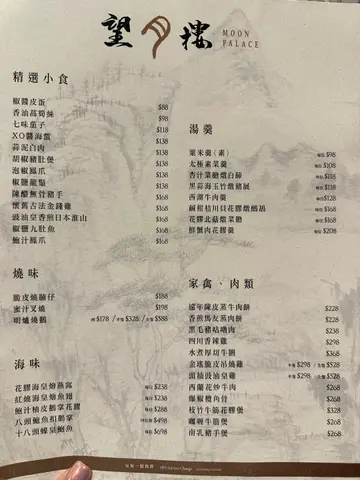 望 樓
MOON
PALACE
精選小食
椒醬皮蛋 $88
香油萵筍絲 $98
七味茄子 $118
XO醬海蜇 $138
蒜泥白肉 $138
胡椒豬肚煲 $168
泡椒鳳爪 $168
椒鹽龍䱽 $168
陳醋無骨豬手 $168
懷舊古法金錢雞 $168
豉油皇香煎日本淮山 $168
椒鹽九肚魚 $168
鮑汁鳳爪 $168
燒味
脆皮燒腩仔 $188
蜜汁叉燒 $198
明爐燒鵝 例 $178 / 半隻 $328 / 全隻 $588
海味
花膠海皇燴燕窩 每位 $238
紅燒海皇燴魚翅 每位 $238
鮑汁柚皮鵝掌花膠 每位 $288
八頭鮑魚扣鵝掌 每位 $498
十八頭蠔皇鮑魚 每位 $698
湯羹
粟米羹（素） 每位 $98
太極素菜羹 每位 $108
杏汁菜膽燉白肺 每位 $118
黑蒜海玉竹燉豬𦟌 每位 $118
西湖牛肉羹 每位 $128
每位 $168
花膠北菇燉菜膽 每位 $168
鮮蟹肉花膠羹 每位 $208
家禽、肉類
遠年陳皮蒸牛肉餅 $228
香煎馬友蒸肉餅 $228
黑毛豬咕嚕肉 $238
四川香辣雞 $298
水煮厚切牛𦟌 $368
金瑤脆皮吊燒雞 半隻 $298 / 全隻 $528
頭抽豉油皇雞 半隻 $298 / 全隻 $528
西蘭花炒牛肉 $268
爆椒欖角骨 $268
枝竹牛筋花膠煲 $328
咖喱牛筋煲 $268
南乳豬手煲 $268
10% Service Charge